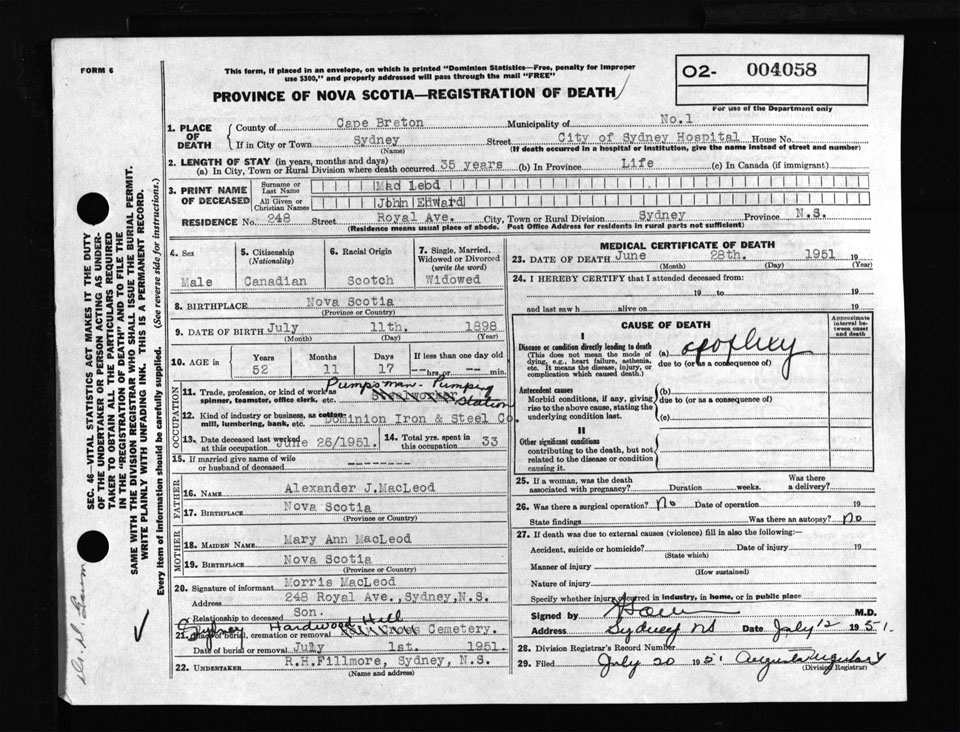 FORM 6
This form, if placed in an envelope, on which is printed "Dominion Statistics—Free, penalty for improper
use $300," and properly addressed will pass through the mail "FREE"
PROVINCE OF NOVA SCOTIA—REGISTRATION OF DEATH
02- 004058
For use of the Department only
1. PLACE OF DEATH
County of Cape Breton Municipality of No.1
If in City or Town Sydney Street City of Sydney Hospital House No.
(Name) (If death occurred in a hospital or institution, give the name instead of street and number)
2. LENGTH OF STAY (in years, months and days)
(a) In City, Town or Rural Division where death occurred 35 years (b) In Province Life (c) In Canada (if immigrant)
3. PRINT NAME OF DECEASED
Surname or Last Name Mac Leod
All Given or Christian Names John Edward
RESIDENCE No. 248 Street Royal Ave. City, Town or Rural Division Sydney Province N.S.
(Residence means usual place of abode. Post Office Address for residents in rural parts not sufficient)
4. Sex
Male
5. Citizenship
(Nationality)
Canadian
6. Racial Origin
Scotch
7. Single, Married,
Widowed or Divorced
(write the word)
Widowed
8. BIRTHPLACE Nova Scotia
(Province or Country)
9. DATE OF BIRTH July 11th. 1898
(Month) (Day) (Year)
10. AGE in
Years Months Days If less than one day old
52 11 17 --hrs.or -- min.
OCCUPATION
11. Trade, profession, or kind of work as
spinner, teamster, office clerk, etc. Pumpsman - Pumping Station
Steelworker
12. Kind of industry or business, as cotton-
mill, lumbering, bank, etc. Dominion Iron & Steel Co.
13. Date deceased last worked
at this occupation June 26/1951.
14. Total yrs. spent in
this occupation 33
15. If married give name of wife
or husband of deceased --------
FATHER
16. NAME Alexander J.MacLeod
17. BIRTHPLACE Nova Scotia
(Province or Country)
MOTHER
18. MAIDEN NAME Mary Ann MacLeod
19. BIRTHPLACE Nova Scotia
(Province or Country)
20. Signature of informant Morris MacLeod
Address 248 Royal Ave.,Sydney,N.S.
Relationship to deceased Son.
Sydney Hardwood Hill
21. Place of burial, cremation or removal Cemetery.
Date of burial or removal July 1st. 1951.
22. UNDERTAKER R.H.Fillmore, Sydney, N.S.
(Name and address)
MEDICAL CERTIFICATE OF DEATH
23. DATE OF DEATH June 28th. 1951 19
(Month) (Day) (Year)
24. I HEREBY CERTIFY that I attended deceased from:
19 to 19
and last saw h alive on 19
CAUSE OF DEATH
Approximate
interval be-
tween onset
and death
I
Disease or condition directly leading to death
(This does not mean the mode of
dying, e.g., heart failure, asthenia,
etc. It means the disease, injury, or
complication which caused death.)
(a) apoplexy
due to (or as a consequence of)
Antecedent causes
Morbid conditions, if any, giving
rise to the above cause, stating the
underlying condition last.
(b)
due to (or as a consequence of)
(c)
II
Other significant conditions
contributing to the death, but not
related to the disease or condition
causing it.
25. If a woman, was the death
associated with pregnancy? Duration weeks. Was there
a delivery?
26. Was there a surgical operation? No Date of operation 19
State findings Was there an autopsy? No
27. If death was due to external causes (violence) fill in also the following:—
Accident, suicide or homicide? Date of injury 19
(State which)
Manner of injury
(How sustained)
Nature of injury
Specify whether injury occurred in industry, in home, or in public place
Signed by M.D.
Address Sydney NS Date July 12 1951.
28. Division Registrar's Record Number
29. Filed July 20 1951
(Division Registrar)
SEC. 46—VITAL STATISTICS ACT MAKES IT THE DUTY
OF THE UNDERTAKER OR PERSON ACTING AS UNDER-
TAKER TO OBTAIN ALL THE PARTICULARS REQUIRED
IN THE "REGISTRATION OF DEATH" AND TO FILE THE
SAME WITH THE DIVISION REGISTRAR WHO SHALL ISSUE THE BURIAL PERMIT.
WRITE PLAINLY WITH UNFADING INK. THIS IS A PERMANENT RECORD.
Every item of information should be carefully supplied. (See reverse side for instructions.)